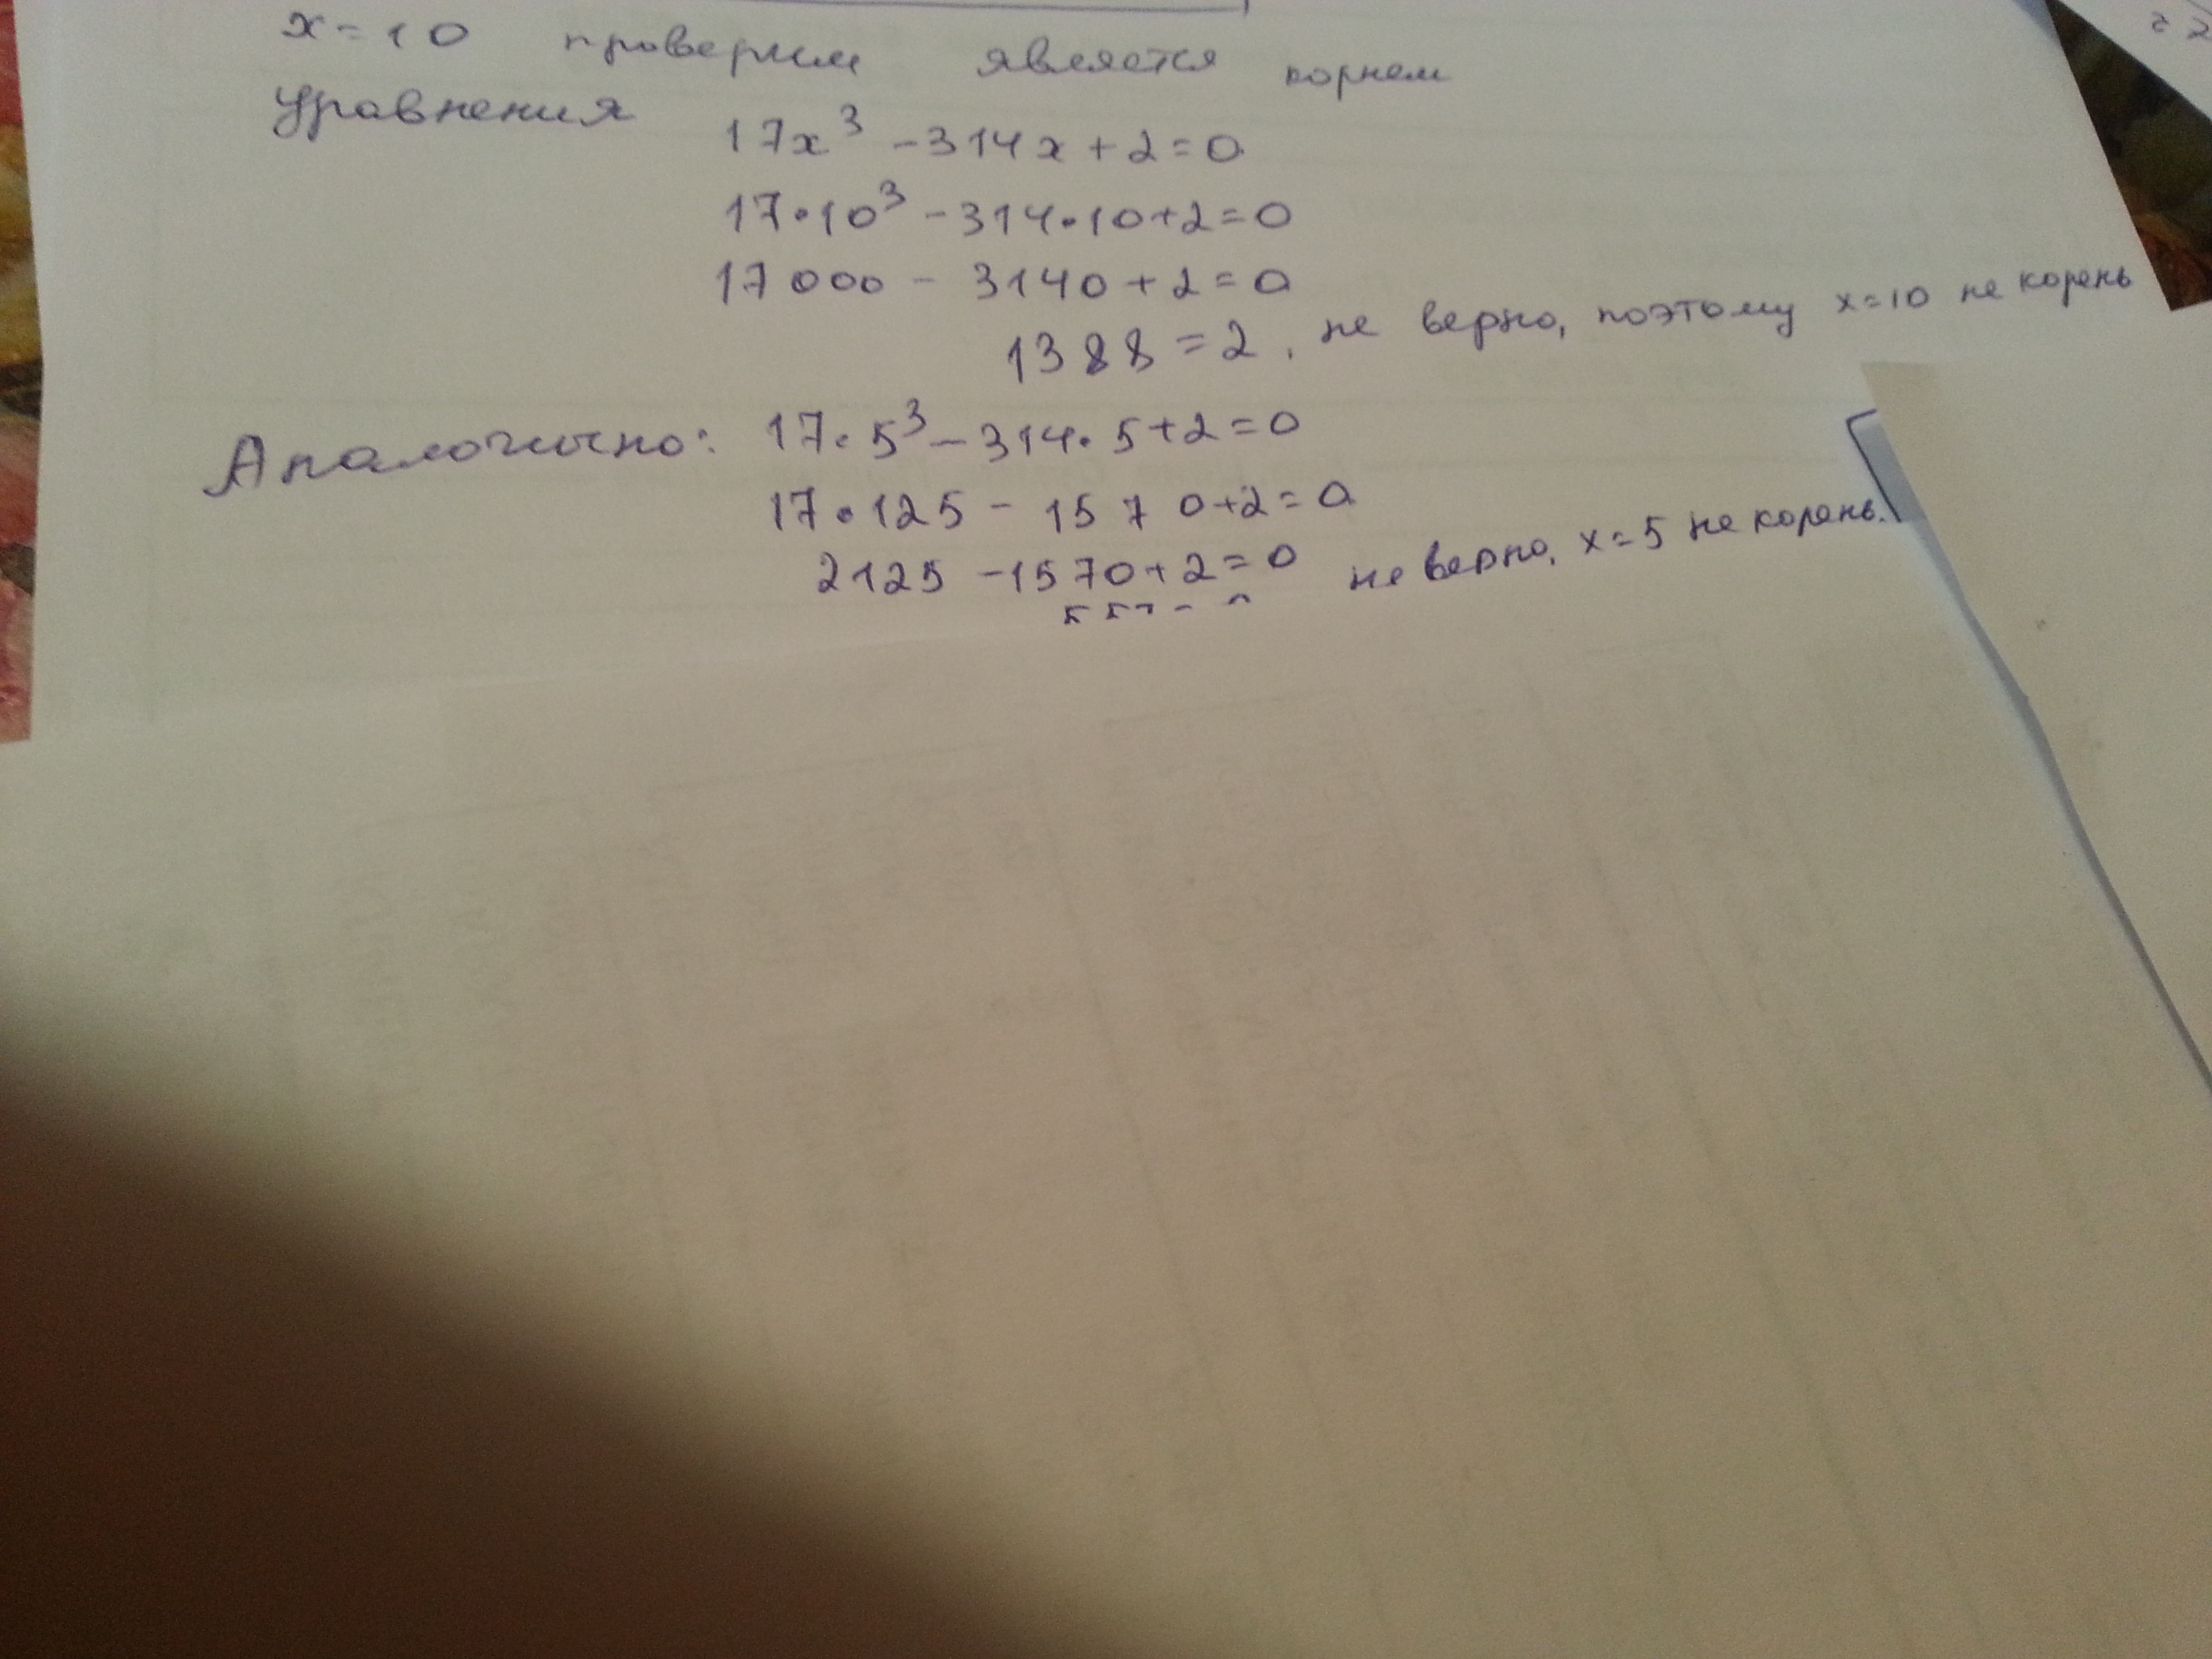 x=10 проверим является корнем
уравнения 17x³ -314x+2=0
17•10³ -314•10+2=0
17000 - 3140+2=0
1388=2. не верно, поэтому x=10 не корень
Аналогично: 17•5³-314•5+2=0
17•125 - 1570+2=0
2125 -1570+2=0 не верно, x=5 не корень.